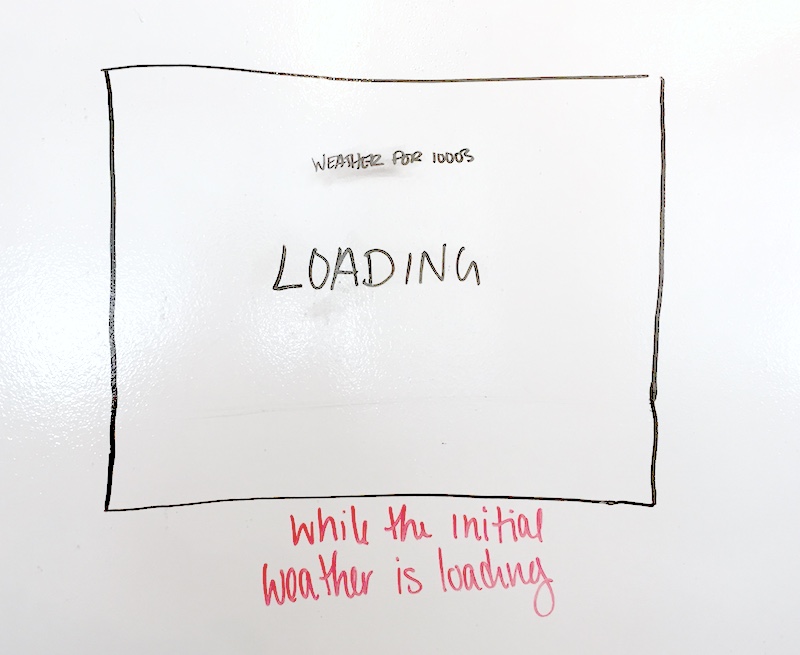 WEATHER FOR 10003
LOADING
while the initial
weather is loading